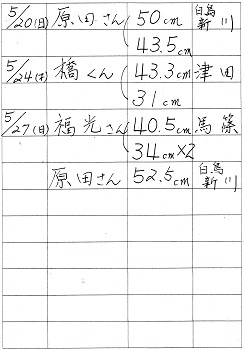 5/20(日) 原田さん 50cm 白鳥新川
43.5cm
5/24(木) 橋くん 43.3cm 津田
31cm
5/27(日) 福光さん 40.5cm 馬篠
34cm×2
原田さん 52.5cm 白鳥新川